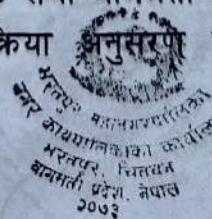 क्रिया अनुसरण
भरतपुर महानगरपालिका
नगर कार्यपालिकाको कार्यालय
भरतपुर, चितवन
बागमती प्रदेश, नेपाल
२०७३